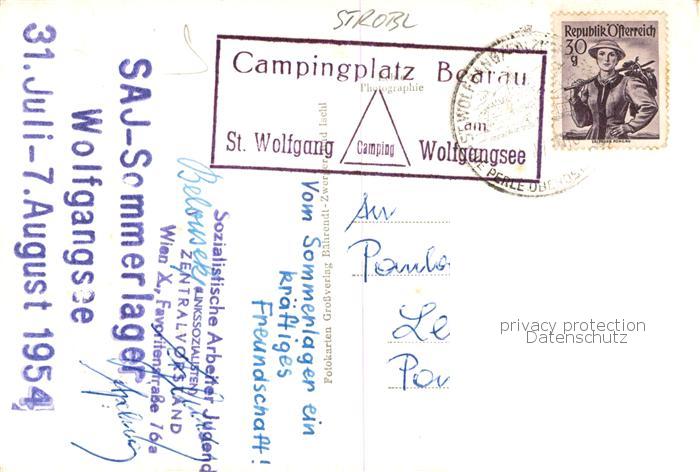 STROBL
Campingplatz Bearau
am
St. Wolfgang
Camping
Wolfgangsee
Republik Österreich
30
g
ST. WOLFGANG
PERLE
SAJ-Sommerlager
Wolfgangsee
31. Juli-7. August 1954
Sozialistische Arbeiter Jugend
LINKSSOZIALISTEN
ZENTRALVORSTAND
Wien X., Favoritenstraße 76a
Belousek
Vom Sommerlager ein
kräftiges
Freundschaft!
Photographie
Fotokarten Großverlag Bährendt-Zwerger Bad Ischl
An
privacy protection
Datenschutz